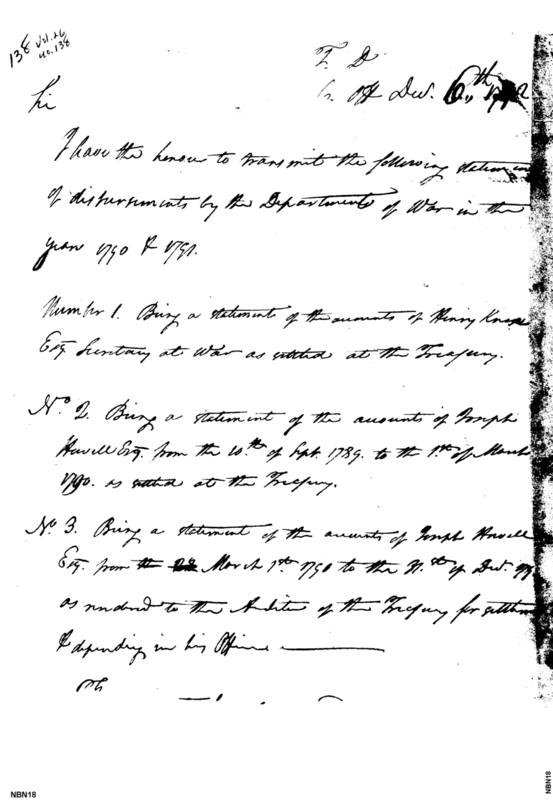 138 Vol. 26
No. 138
T. D
Off Dec. 6th 1792
Sir
I have the honour to transmit the following statements
of disbursements by the Department of War in the
years 1790 & 1791.
Number 1. Being a statement of the accounts of Henry Knox
Esq. Secretary at War as settled at the Treasury.
No. 2. Being a statement of the accounts of Joseph
Howell Esq. from the 10.th of Sept. 1789. to the 1.st of March
1790. as settled at the Treasury.
No. 3. Being a statement of the accounts of Joseph Howell
Esq. from the March 1.st 1790 to the 31.st of Dec. 91
as rendered to the Auditor of the Treasury for settlem
& depending in his Office
NBN18
NBN18